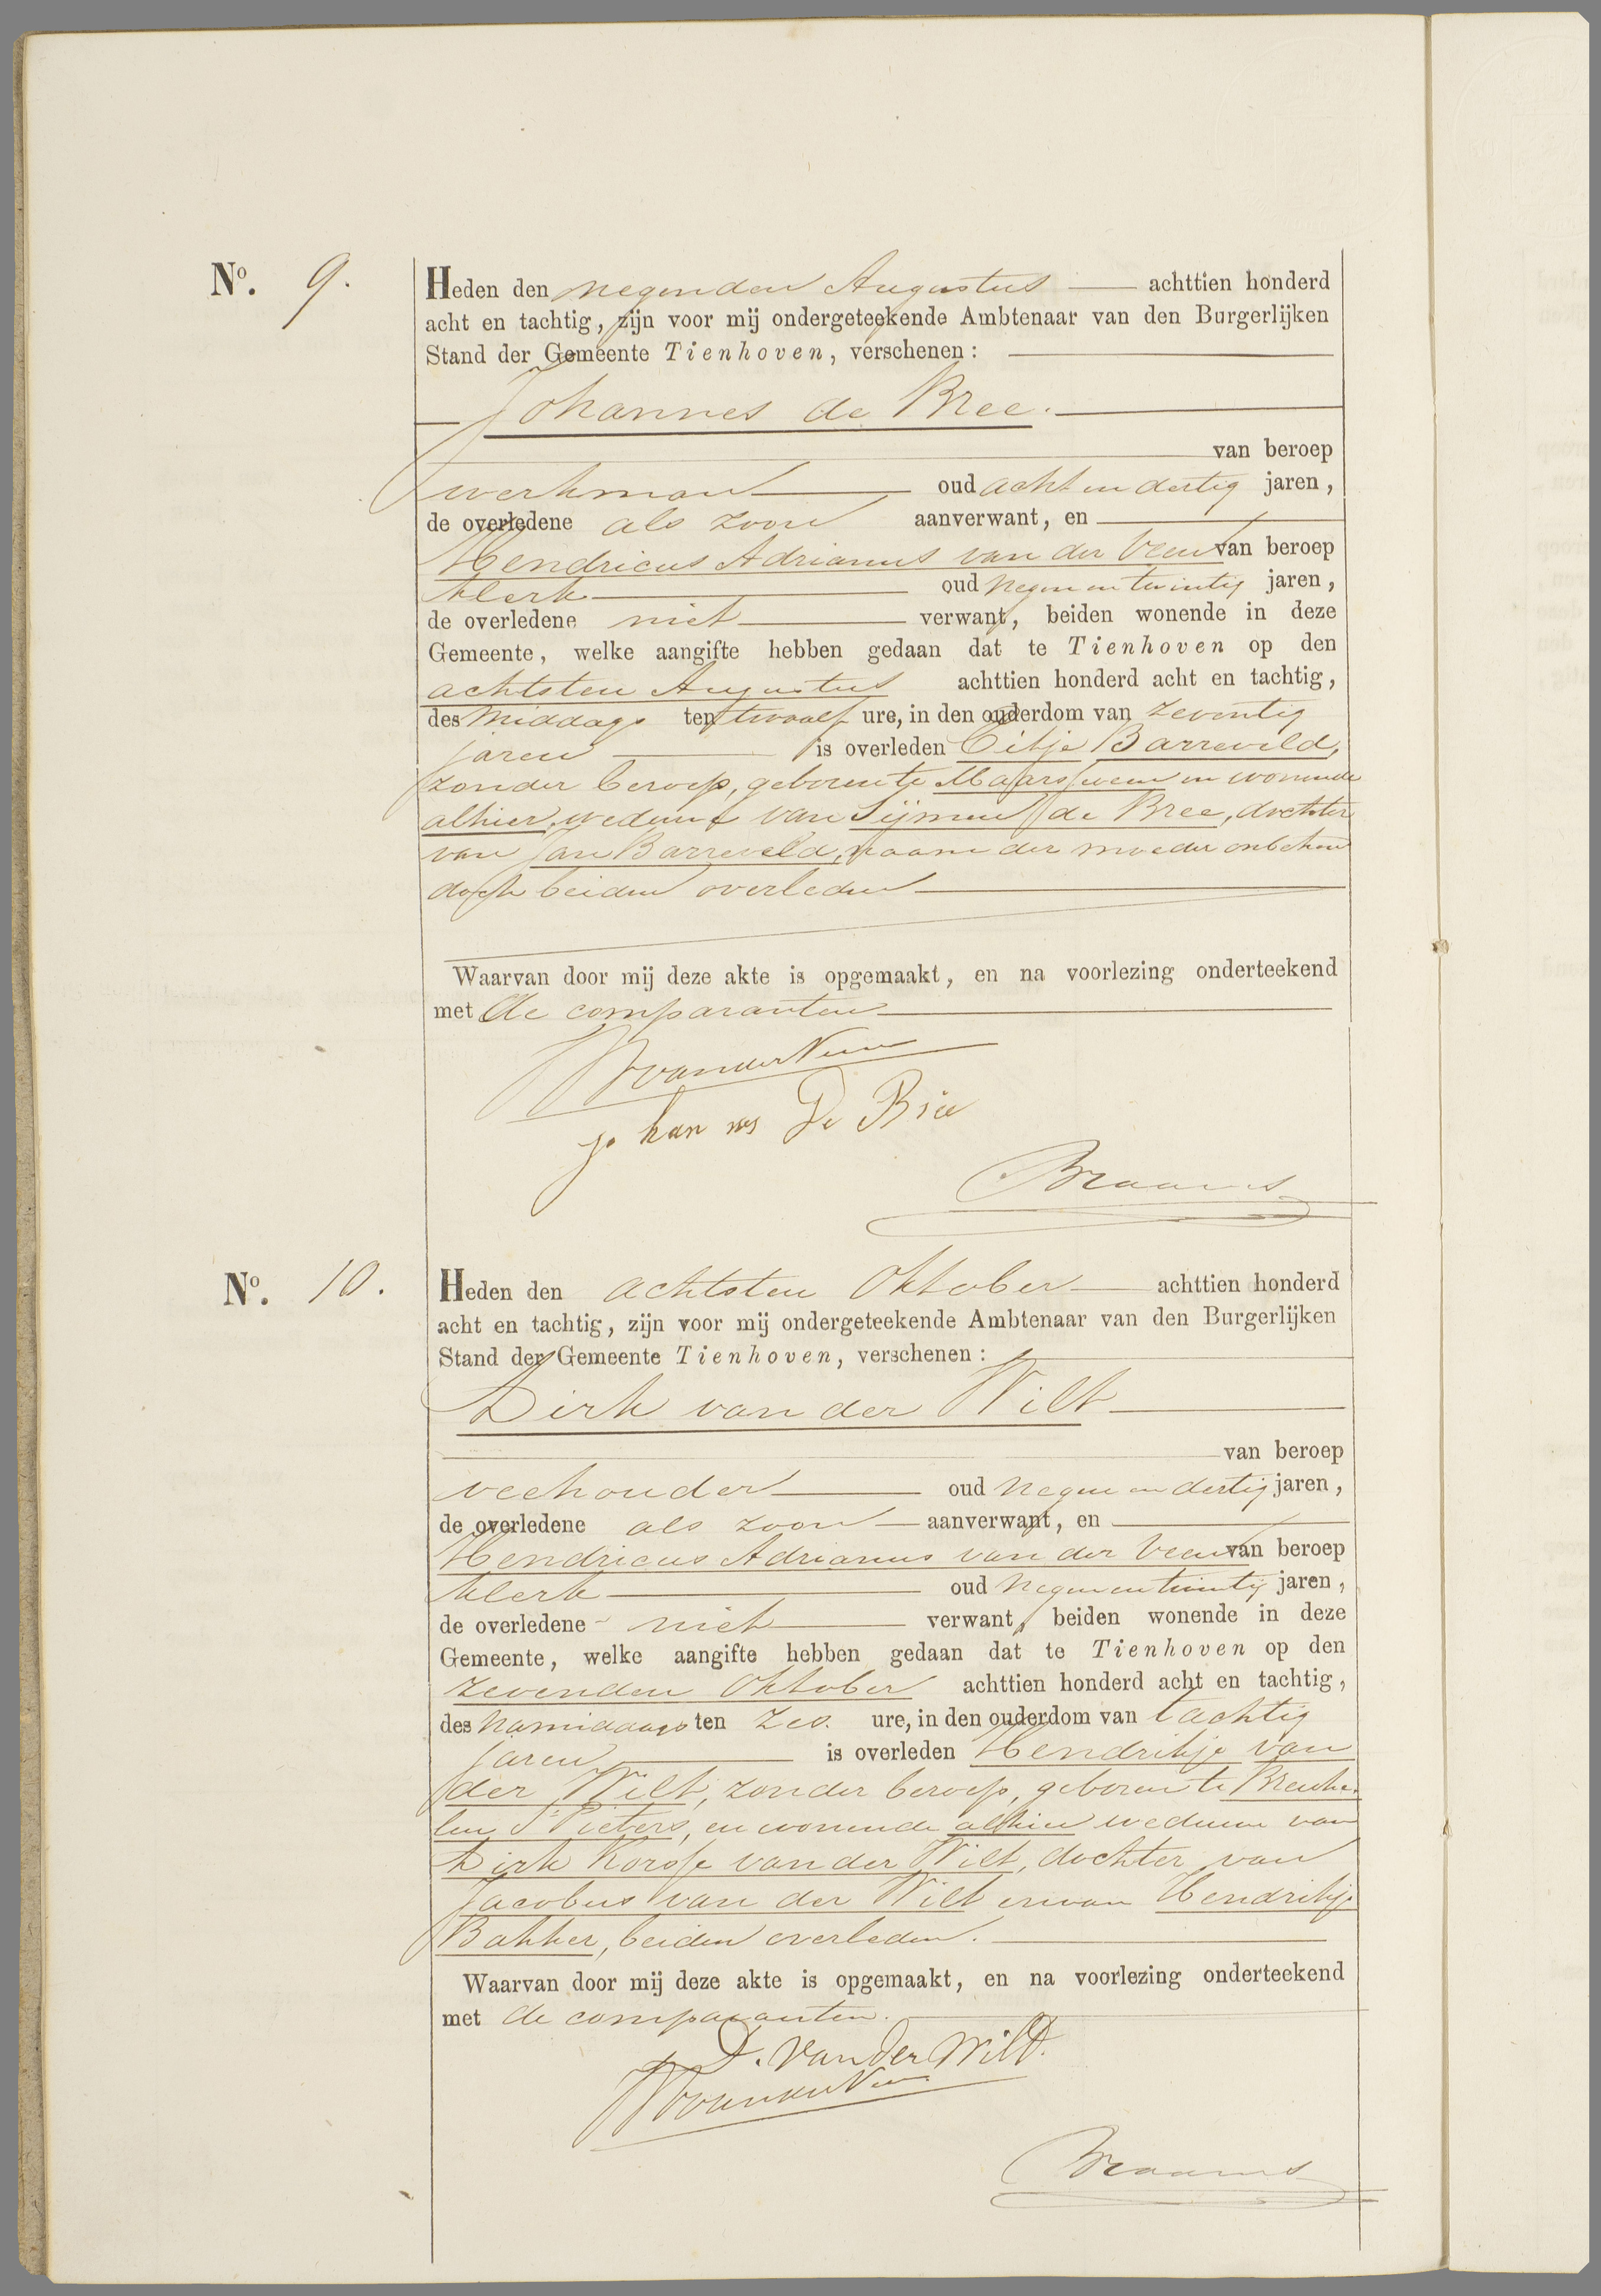 No. 9.
Heden den negenden Augustus achttien honderd
acht en tachtig, zijn voor mij ondergeteekende Ambtenaar van den Burgerlijken
Stand der Gemeente Tienhoven, verschenen:
Johannes de Bree.
van beroep
werkman oud acht en dertig jaren,
de overledene als zoon aanverwant, en
Hendricus Adrianus van der Veen van beroep
klerk oud negen en twintig jaren,
de overledene niet verwant, beiden wonende in deze
Gemeente, welke aangifte hebben gedaan dat te Tienhoven op den
achtsten Augustus achttien honderd acht en tachtig,
des middags ten twaalf ure, in den ouderdom van zeventig
jaren is overleden Eitje Barreveld,
zonder beroep, geboren te Maarsseveen en wonende
alhier, weduwe van Sijmen de Bree, dochter
van Jan Barreveld, naam der moeder onbekend
doch beiden overleden
Waarvan door mij deze akte is opgemaakt, en na voorlezing onderteekend
met de comparanten
van der Veen
Johannes De Bree
Braams
No. 10.
Heden den achtsten Oktober achttien honderd
acht en tachtig, zijn voor mij ondergeteekende Ambtenaar van den Burgerlijken
Stand der Gemeente Tienhoven, verschenen:
Dirk van der Wilt
van beroep
veehouder oud negen en dertig jaren,
de overledene als zoon aanverwant, en
Hendricus Adrianus van der Veen van beroep
klerk oud negen en twintig jaren,
de overledene niet verwant, beiden wonende in deze
Gemeente, welke aangifte hebben gedaan dat te Tienhoven op den
zevenden Oktober achttien honderd acht en tachtig,
des namiddags ten zes. ure, in den ouderdom van tachtig
jaren is overleden Hendrikje van
der Wilt, zonder beroep, geboren te Breuke-
len St Pieters, en wonende alhier weduwe van
Dirk Korsse van der Wilt, dochter van
Jacobus van der Wilt en van Hendrikje
Bakker, beiden overleden.
Waarvan door mij deze akte is opgemaakt, en na voorlezing onderteekend
met de comparanten.
D. van der Wilt.
van der Veen
Braams